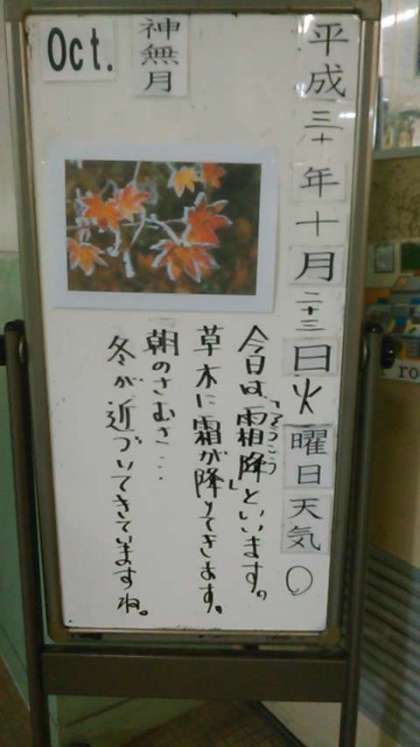 Oct.
神無月
平成三十年十月二十三日火曜日天気○
今日は、「霜降」といいます。
そうこう
草木に霜が降りてきます。
朝のさむさ…
冬が近づいてきていますね。
ro